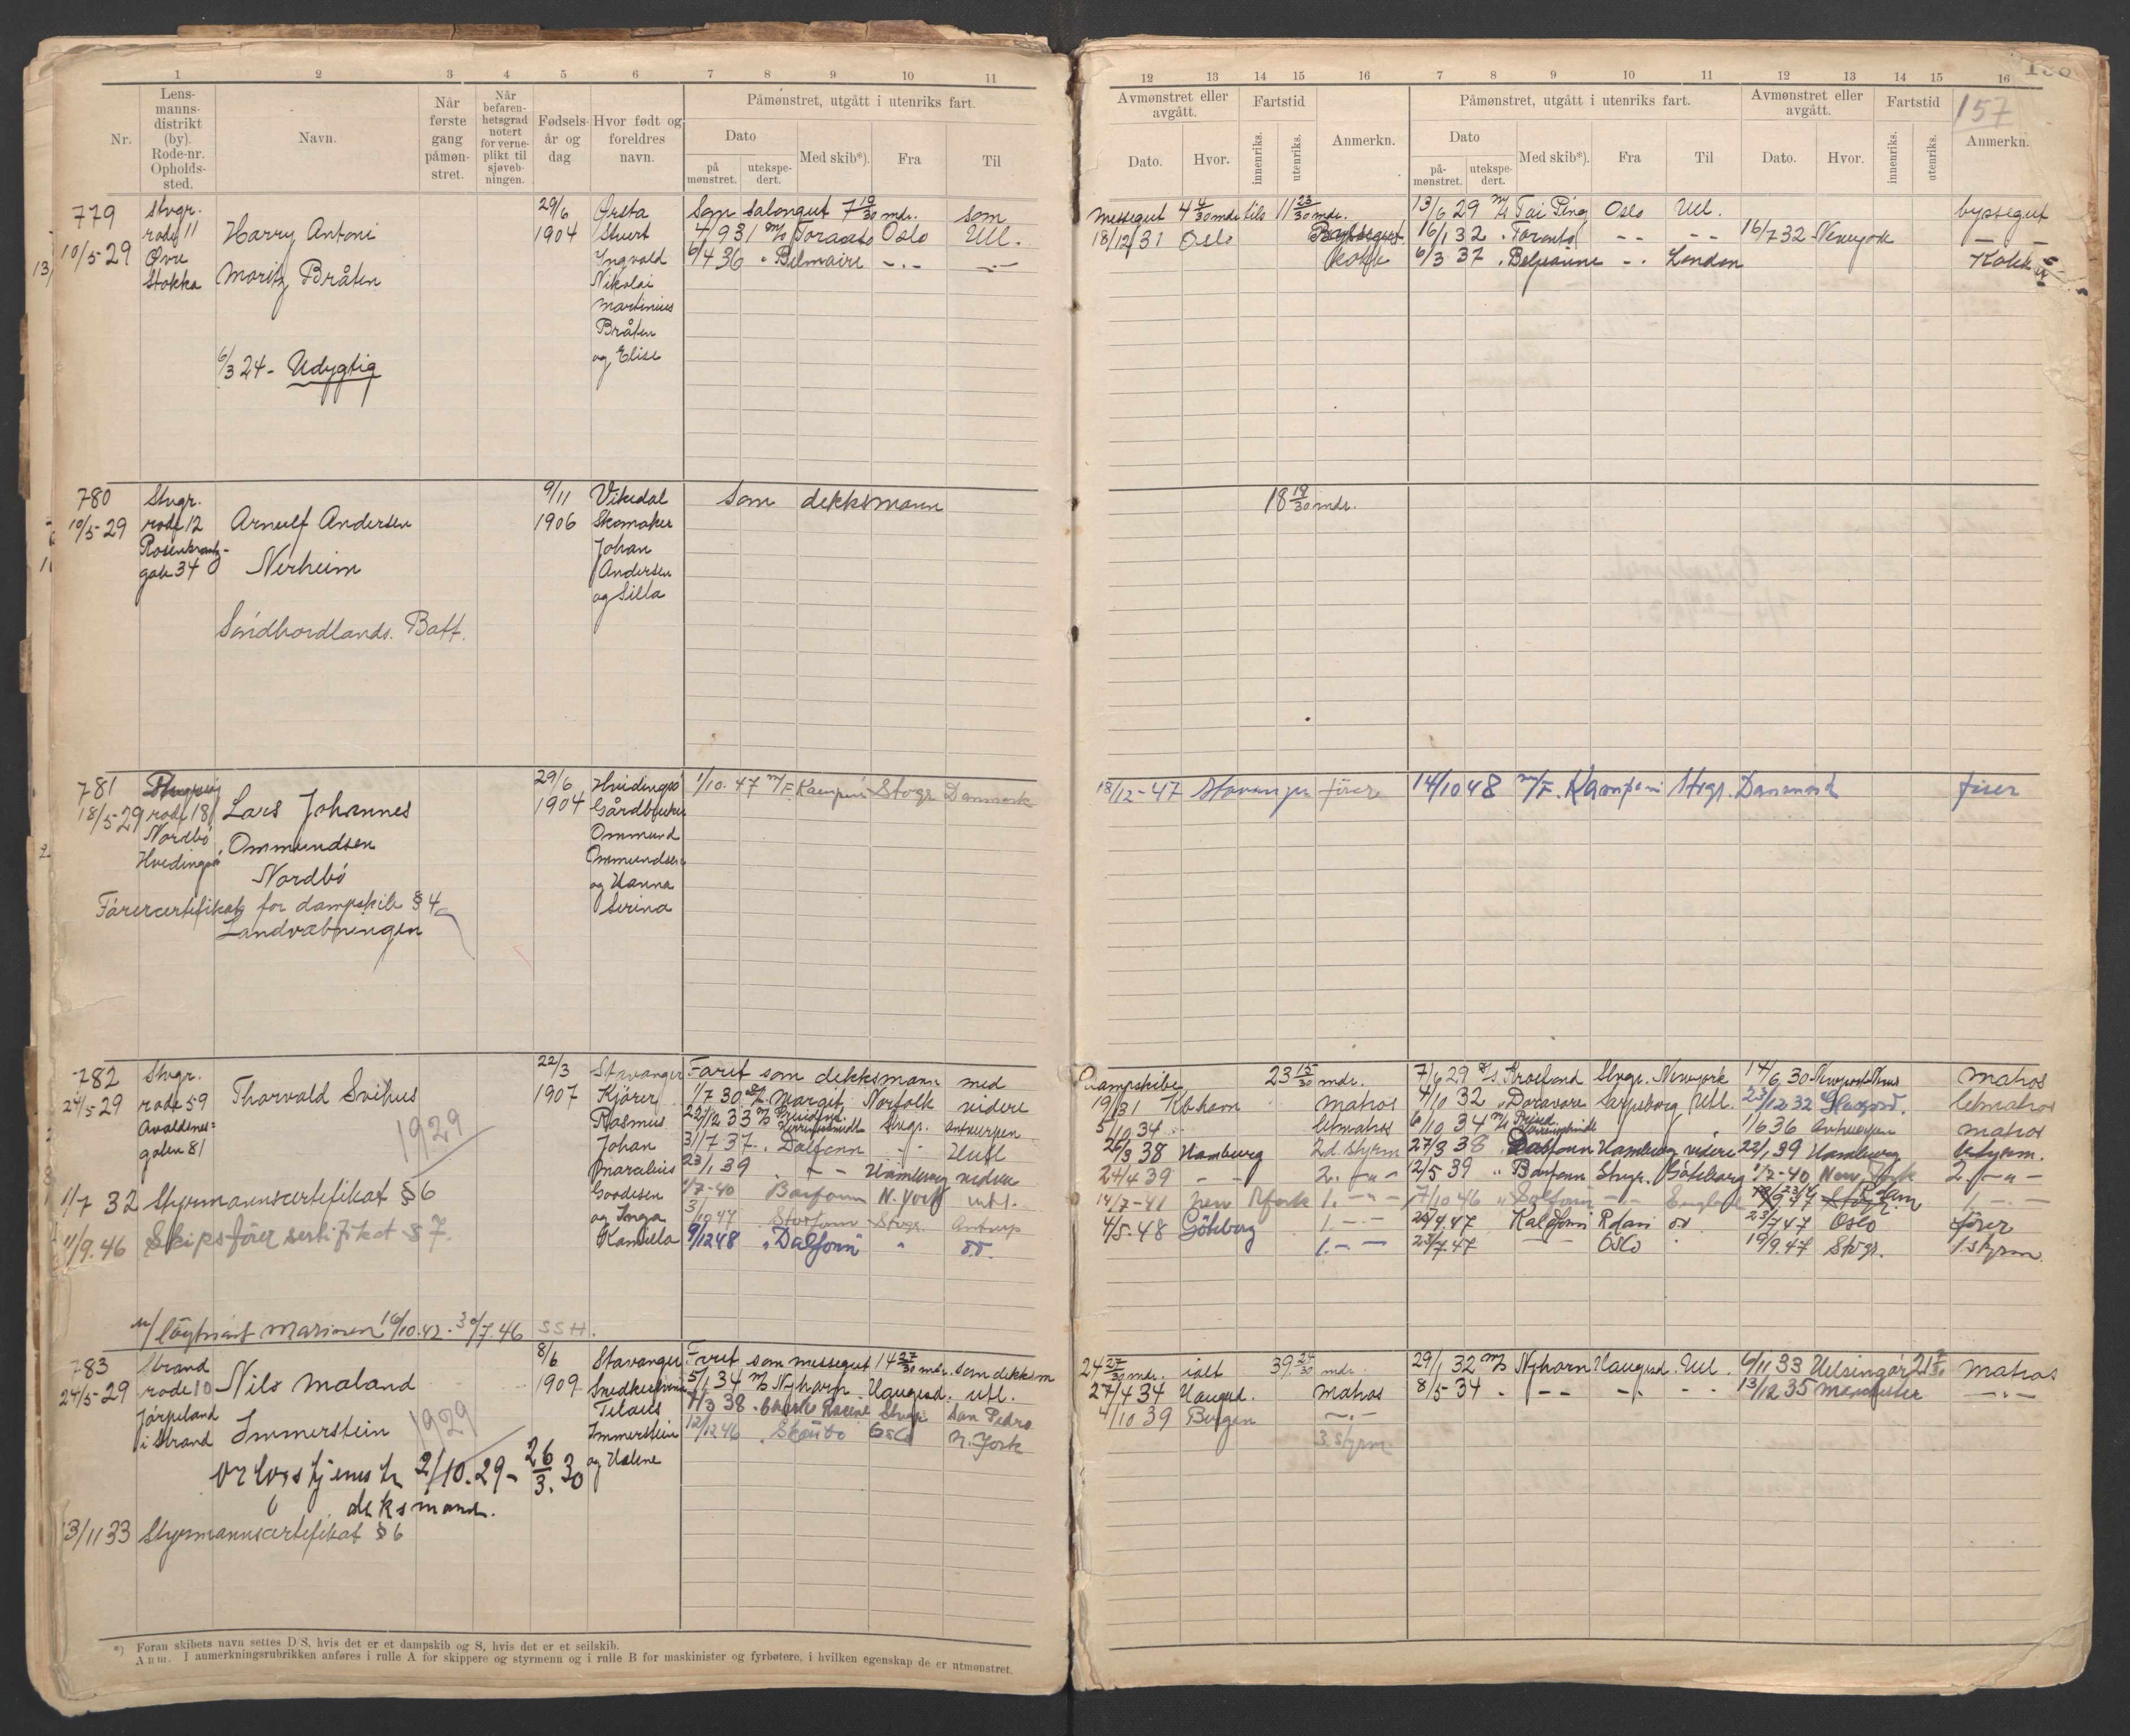 1 2 3 4 5 6 7 8 9 10 11
Nr.
Lens-
manns-
distrikt
(by).
Rode-nr.
Opholds-
sted.
Navn.
Når
første
gang
påmøn-
stret.
Når
befaren-
hetsgrad
notert
for verne-
plikt til
sjøveb-
ningen.
Fødsels-
år og
dag
Hvor født og
foreldres
navn.
Påmønstret, utgått i utenriks fart.
Dato
på
mønstret.
utekspe-
dert.
Med skib*).
Fra
Til
779
10/5-29
Stvgr.
rode 11
Øvre
Stokka
Harry Antoni
Moritz Bråten
6/3 24 - Udygtig
29/6
1904
Ørsta
Stuert
Ingvald
Nikolai
Martinius
Bråten
og Elise
Som salongut 7 19/30 mdr. som
4/9 31 m/s Toronto Oslo Utl.
6/4 36 " Belmaire -.- -.-
780
10/5-29
Stvgr.
rode 12
Rosenkrantz-
gate 34
Arnulf Andersen
Nerheim
Søndhordlands. Batt.
9/11
1906
Vikedal
Skomaker
Johan
Andersen
og Silla
Som dekksmann
781
18/5-29
rode 18
Nordbø
Hvidingsø
Lars Johannes
Ommundsen
Nordbø
Førercertifikat for dampskib § 4
Landvæbningen
29/6
1904
Hvidingsø
Gårdbruker
Ommund
Ommundsen
og Hanna
Serina
1/10.47 m/F. Kampen Stvgr. Danmark
782
24/5-29
Stvgr.
rode 59
Avaldsnes-
gaten 81
Thorvald Svihus
1929
1/7 32 Styrmannscertifikat § 6
11/9.46 Skipsfører sertifikat § 7.
løytnant marinen 16/10.42 - 30/7.46 SSH.
22/3
1907
Stavanger
Kjører
Rasmus
Johan
Marcelius
Goodesen
og Inga
Kamilla
Faret som dekksmann med
1/7 30 Margit Norfolk videre
22/12 33 Stvgr. Antwerpen
31/7 37 " Dalfonn " Utl
23/1 39 " - - Hamburg videre
1/7-40 Barfonn N. York utl.
3/10 47 Storfonn Stvgr. Antwerp
9/12 48 " Dalfonn "
783
24/5-29
Strand
rode 10
Jørpeland
i Strand
Nils Maland
Immerstein
1929
Orlogstjeneste 2/10.29 - 26/3.30
deksmand.
13/11 33 Styrmannscertifikat § 6
8/6
1909
Stavanger
Immerstein
og Halene
Faret som messegut 14 27/30 mdr. som dekksm
5/1 34 m/s Nyhorn Haugesd. utl.
7/3 38 Stvgr San Pedro
12/12 46 " Skaubo Oslo N. York
*) Foran skibets navn settes D/S, hvis det er et dampskib og S, hvis det er et seilskib.
Anm. I anmerkningsrubrikken anføres i rulle A for skippere og styrmenn og i rulle B for maskinister og fyrbøtere, i hvilken egenskap de er utmønstret.
12 13 14 15 16 7 8 9 10 11 12 13 14 15 16
157
Avmønstret eller
avgått.
Dato. Hvor.
Fartstid
innenriks. utenriks.
Anmerkn.
Påmønstret, utgått i utenriks fart.
Dato
på-
mønstret.
utekspe-
dert.
Med skib*). Fra Til
Avmønstret eller
avgått.
Dato. Hvor.
Fartstid
innenriks. utenriks.
Anmerkn.
Messegut 4 4/30 mdr tils 11 23/30 mdr. 13/6 29 m/s Tai Ping Oslo Utl. byssegut
18/12 31 Oslo Byssegut 16/1 32 " Toronto -- -- 16/7 32 Newyork - -
Kokk 6/3 37 " Belpeanne -. London Kokk
18 19/30 mdr.
18/12-47 Stavanger fører 14/10 48 m/F. Kampen Stvgr. Danmark fører
Dampskibe 23 15/30 mdr. 7/6 29 Stvgr. Newyork 14/6 30 Newport News matros
19/1 31 Kbhavn matros 4/10 32 " Doravore Sarpsborg Utl. 23/12 32 letmatros
5/10 34 letmatros 6/10 34 1/6 36 Antwerpen matros
26/3 38 Hamburg 2d. styrm 27/3 38 Dalfonn Hamburg videre 22/1 39 Hamburg
24/4 39 - - 2. -"- 12/5 39 " Barfonn Stvgr. Göteborg 1/7-40 New York 2. -"-
14/7-41 New York 1. -"- 7/10 46 " Dalfonn -- England 1. - -
4/5-48 Göteborg 1. - - 26/4.47 Kaldfonn Rdam 23/7 47 Oslo fører
1. - - 23/7.47 Oslo 19/9.47 Stvgr. 1. styrm
24 27/30 mdr. ialt 39 24/30 mdr 29/1 32 m/s Nyhorn Haugesd. Utl. 6/11 33 Helsingør 21 7/30 matros
27/4 34 Haugesd. matros 8/5 34 " -- -- -- 13/12 35 Manchester -.-
4/10 39 Bergen -.-
3 styrm